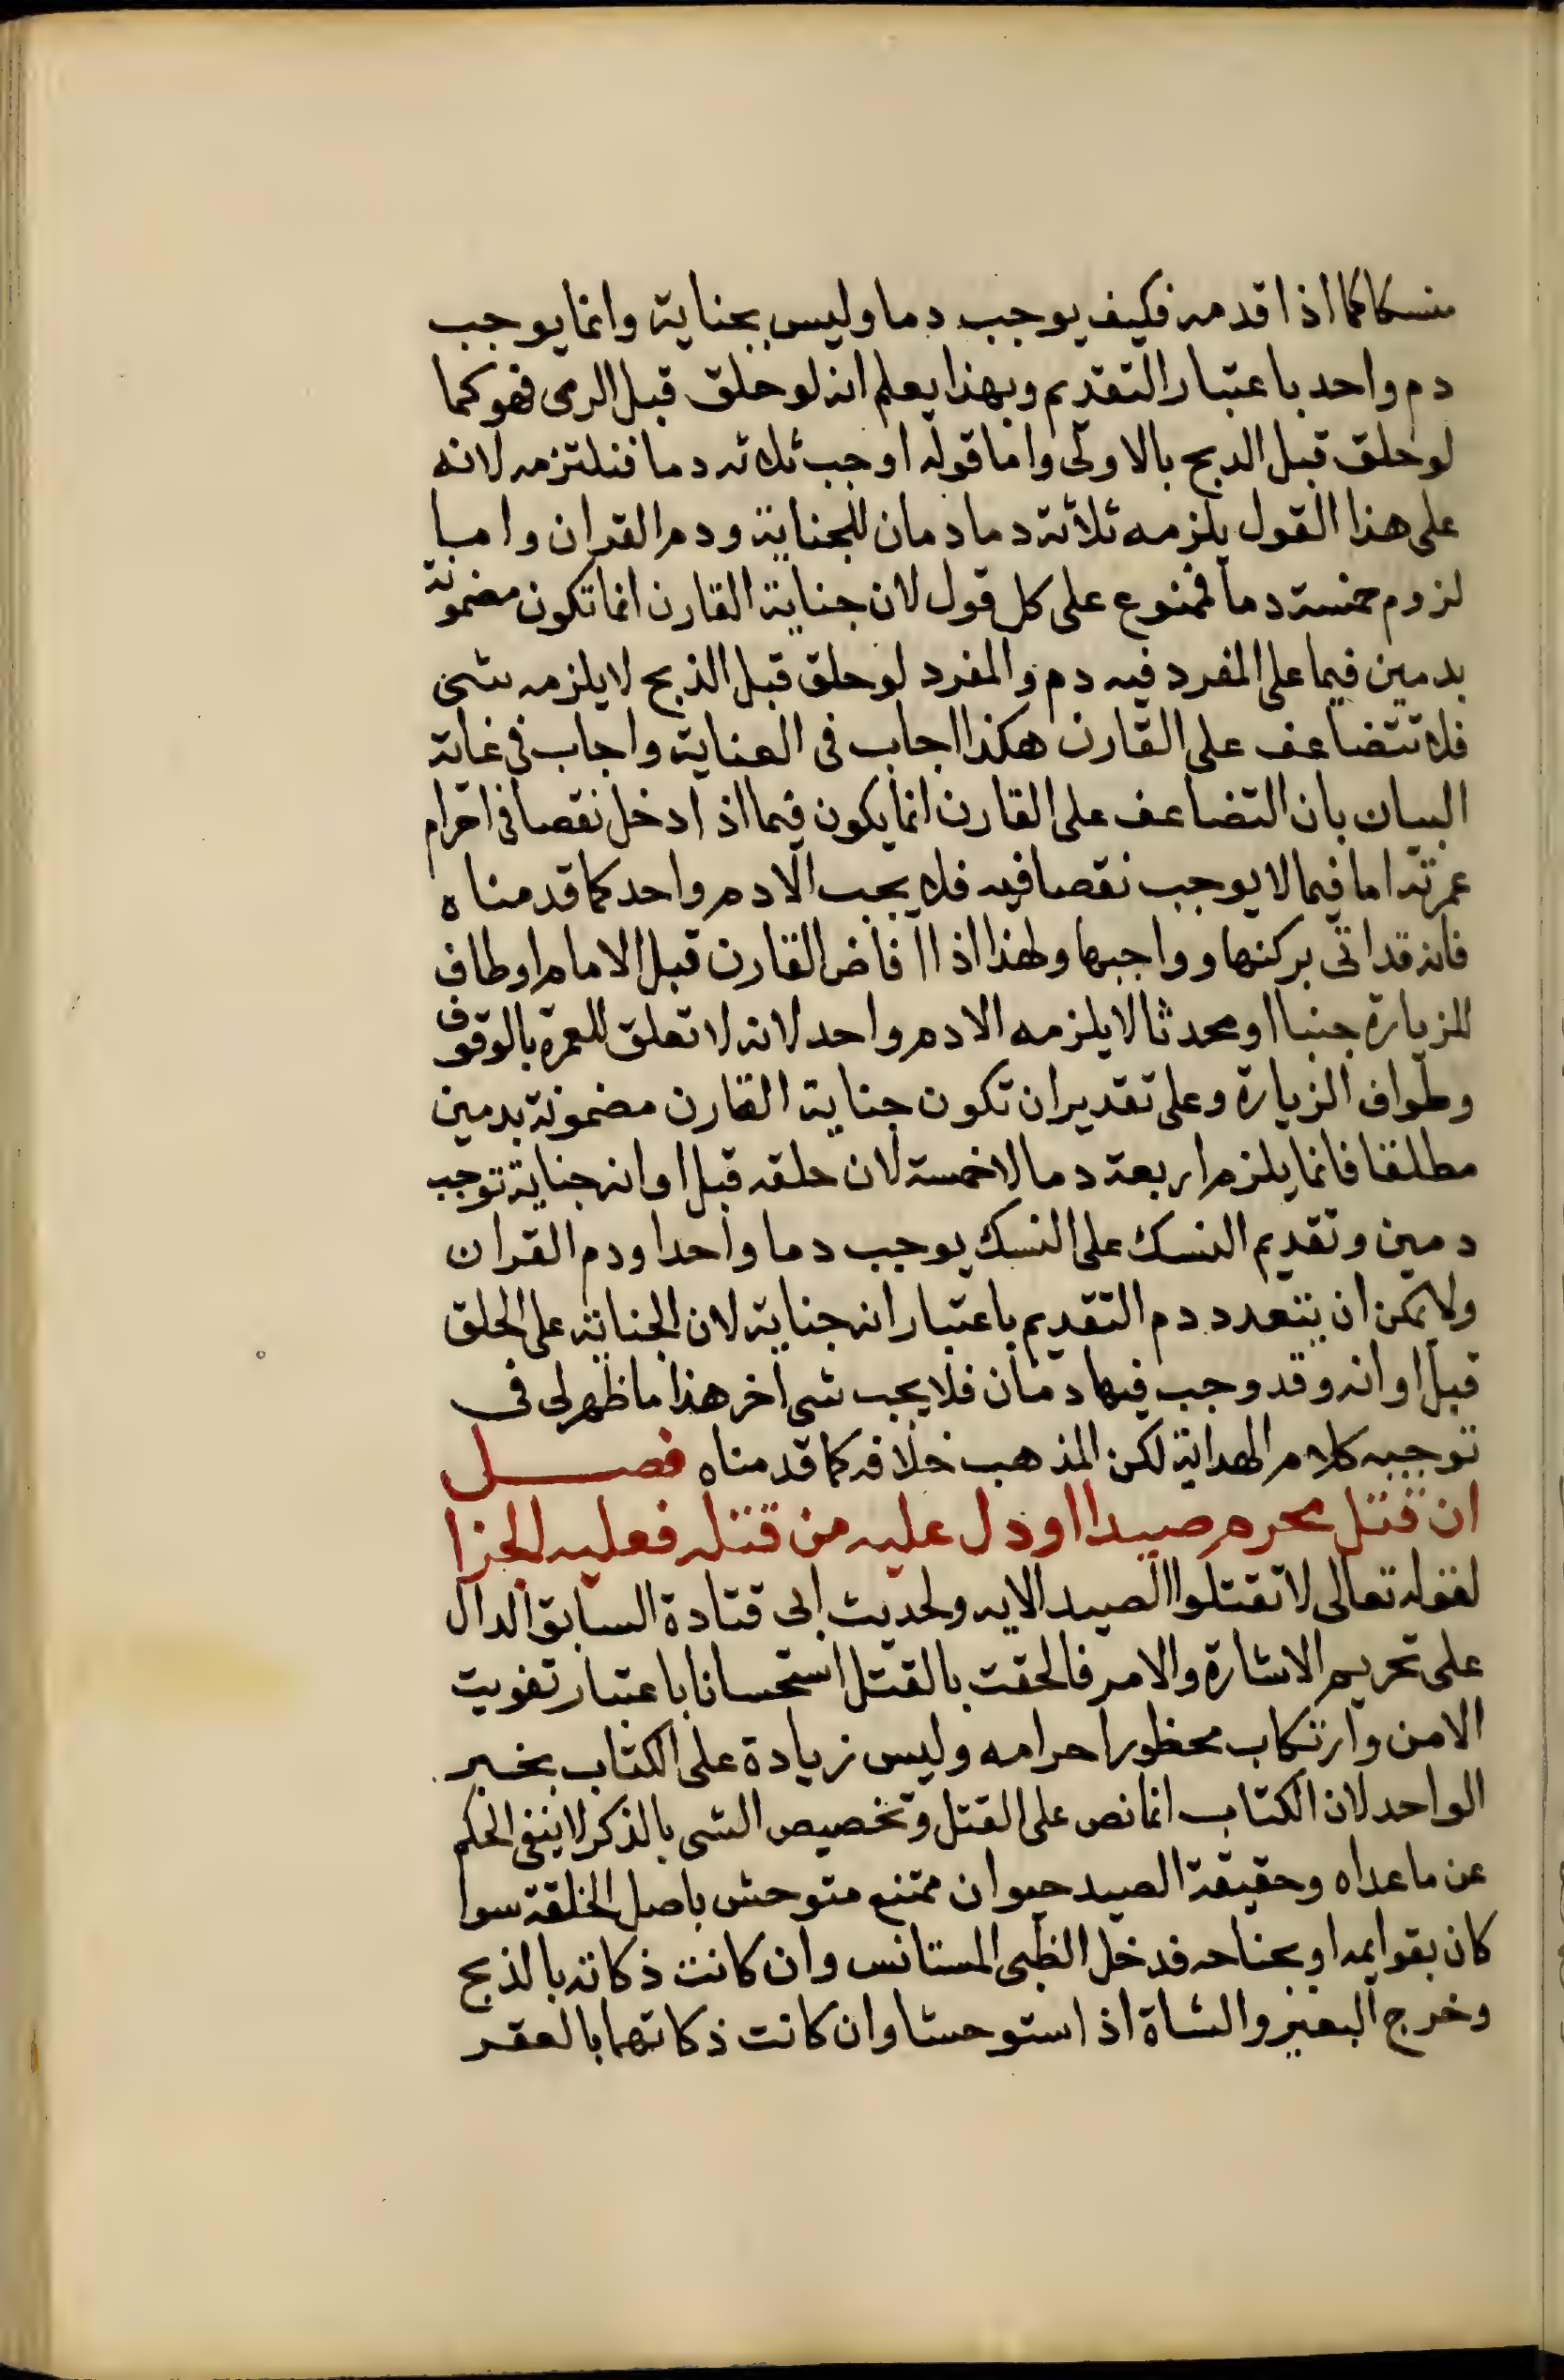 منسكا كما اذا قدمه فكيف يوجب دما وليس بجناية وانما يوجب
دم واحد باعتبار التقديم وبهذا يعلم انه لو حلق قبل الرمى فهو كما
لو حلق قبل الدبح بالاولى واما قوله اوجب ثلاثه دما فنلتزمه لانه
على هذا القول يلزمه ثلاثة دما دمان للجناية ودم القران واما
لزوم خمسة دما فممنوع على كل قول لان جناية القارن انما تكون مضمونة
بدمين فيما على المفرد فيه دم والمفرد لو حلق قبل الذبح لا يلزمه شى
فلا تتضاعف على القارن هكذا اجاب فى العناية واجاب فى غاية
البيان بان التضاعف على القارن انما يكون فيما اذا ادخل نقصا فى احرام
عمرته اما فيما لا يوجب نقصا فيه فلا يجب الا دم واحد كما قدمناه
فانه قد اتى بركنها وواجبها ولهذا اذا افاض القارن قبل الامام او طاف
للزيارة جنبا او محدثا لا يلزمه الا دم واحد لانه لا تعلق للعمرة بالوقوف
وطواف الزيارة وعلى تقدير ان تكون جناية القارن مضمونة بدمين
مطلقا فانما يلزم اربعة دما لا خمسة لان حلقه قبل اوانه جناية توجب
دمين وتقديم النسك على النسك يوجب دما واحدا ودم القران
ولا يمكن ان يتعدد دم التقديم باعتبار انه جناية لان الجناية على الحلق
قبل اوانه وقد وجب فيها دمان فلا يجب شى اخر هذا ما ظهر لى فى
توجيه كلام الهداية لكن المذهب خلافه كما قدمناه فصل
ان قتل محرم صيدا او دل عليه من قتله فعليه الجزا
لقوله تعالى لا تقتلوا الصيد الايه ولحديث ابى قتادة السابق الدال
على تحريم الاشارة والامر فالحقت بالقتل استحسانا باعتبار تفويت
الامن وارتكاب محظور احرامه وليس زيادة على الكتاب بخبر
الواحد لان الكتاب انما نص على القتل وتخصيص الشى بالذكر لا ينفى الحكم
عن ما عداه وحقيقة الصيد حيوان ممتنع متوحش باصل الخلقة سوا
كان بقوايمه او بجناحه فدخل الظبى المستانس وان كانت ذكاته بالذبح
وخرج البعير والشاة اذا استوحشا وان كانت ذكاتهما بالعقر